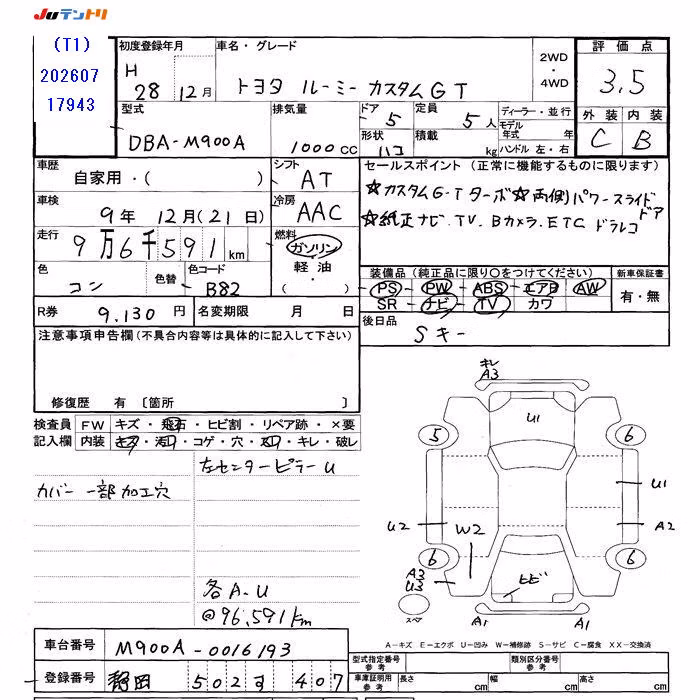 Juテントリ
(T1)
202607
17943
初度登録年月
H
28 12月
車名・グレード
トヨタ ルーミー カスタムGT
2WD
・
4WD
評価点
3.5
外装 内装
C B
型式
DBA-M900A
排気量
1000cc
ドア 5
形状 ハコ
定員 5人
積載 kg
ディーラー・並行
モデル年式 年
ハンドル 左・右
車歴
自家用・( )
シフト
AT
車検
9年 12月(21日)
冷房
AAC
走行
9万6千591km
燃料
ガソリン
軽油・
( )
色
コン
色替
色コード
B82
R券 9.130円
名変期限 月 日
セールスポイント (正常に機能するものに限ります)
☆カスタムG-Tターボ☆両側パワースライドドア
☆純正ナビ.TV.Bカメラ.ETC ドラレコ
装備品 (純正品に限り○をつけてください)
新車保証書
PS PW ABS エアB AW
SR ナビ TV カワ
有・無
後日品
Sキー
注意事項申告欄(不具合内容等は具体的に記入して下さい)
修復歴 有〔箇所 〕
検査員記入欄
FW キズ・飛石・ヒビ割・リペア跡・×要
内装 キズ・汚れ・コゲ・穴・スレ・キレ・破レ
左センターピラーU
カバー一部加工穴
各A-U
@96,591km
キレ
A3
U1
5
6
U1
U2
W2
A2
6
6
A3
U3
ヒビ
スペア
A1
A1
A-キズ E-エクボ U-凹み W-補修跡 S-サビ C-腐食 XX-交換済
車台番号 M900A-0016193
登録番号 静岡 502す 407
型式指定番号 参考
類別区分番号 参考
車庫証明用 参考
長さ cm
幅 cm
高さ cm